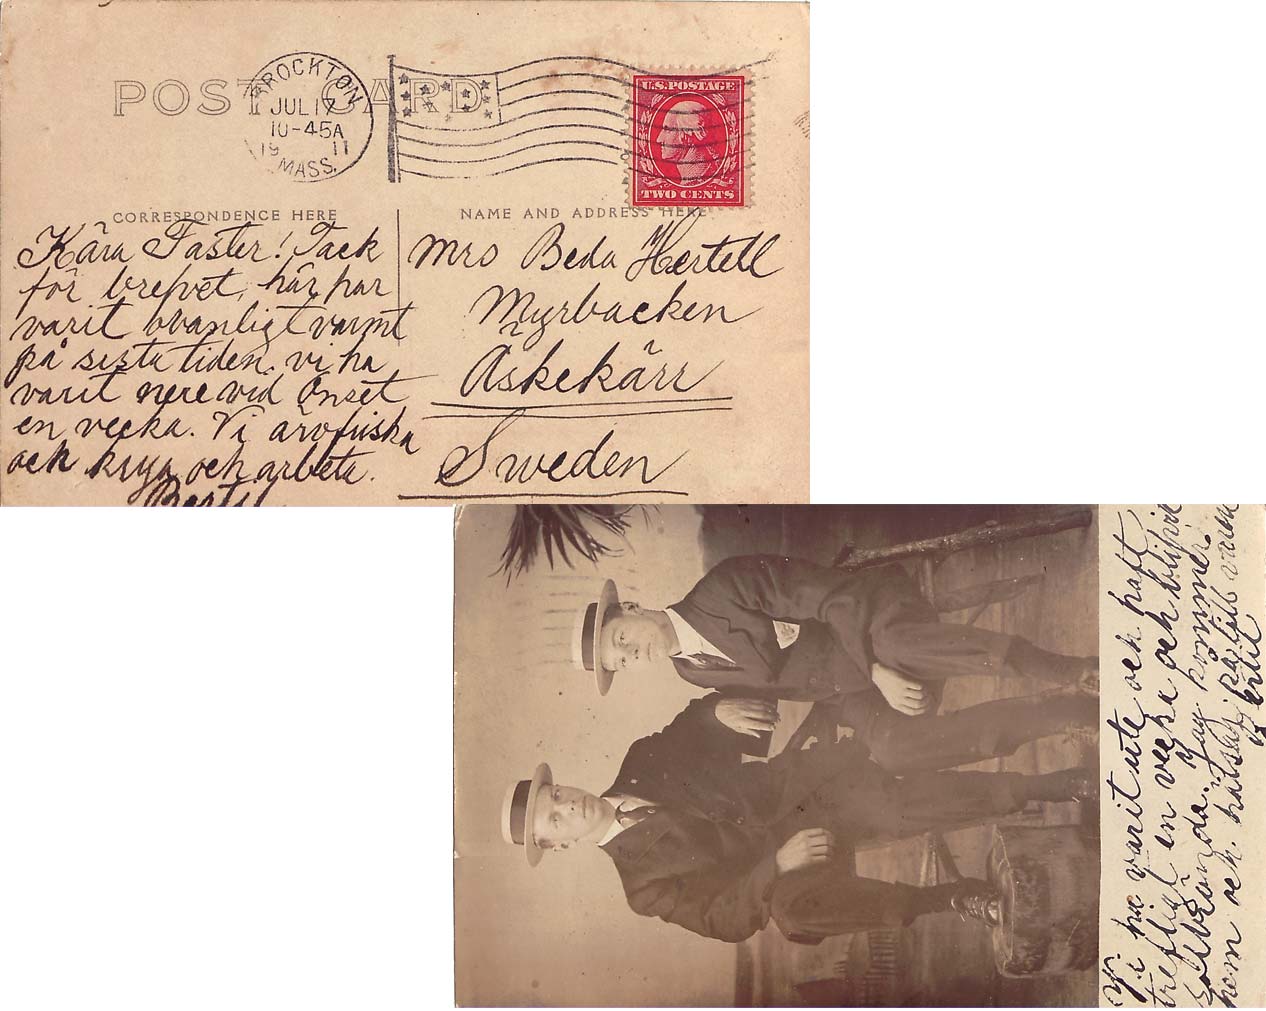 POST CARD
BROCKTON
JUL 17
10-45A
1911
MASS.
U.S. POSTAGE
TWO CENTS
CORRESPONDENCE HERE
NAME AND ADDRESS HERE
Kära Faster! Tack
för brefvet, här har
varit ovanligt varmt
på sista tiden. vi ha
varit nere vid Onset
en vecka. Vi äro friska
och krya och arbeta.
Bertil
Mrs Beda Hertell
Myrbacken
Äskekärr
Sweden
Vi ha varit ute och haft
trefligt en vecka och blifvit
solbrända. Jag kommer
hem och hälsar på
Bertil